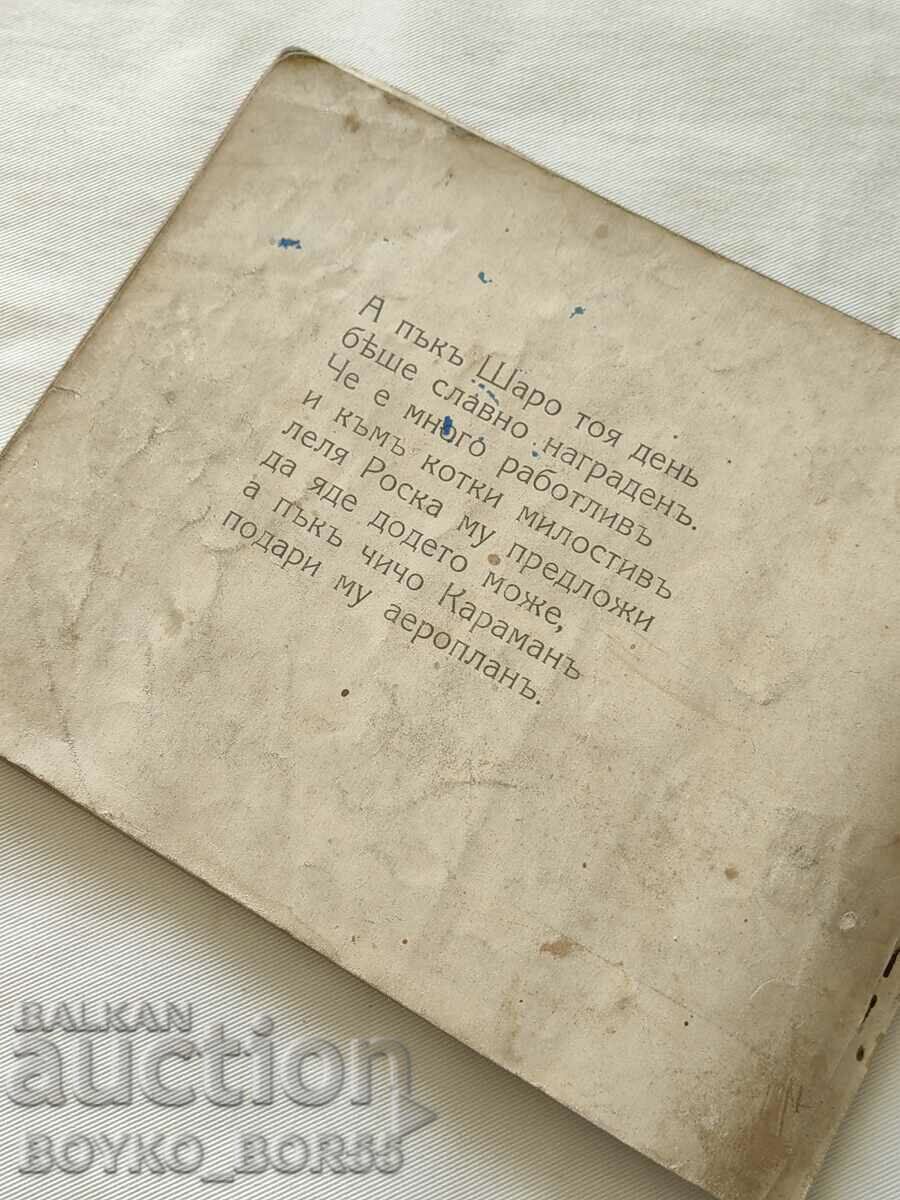 А пъкъ Шаро тоя день
бѣше славно награденъ.
Че е много работливъ
и къмъ котки милостивъ
леля Роска му предложи
да яде додето може,
а пъкъ чичо Караманъ
подари му аеропланъ.
BALKAN
auction
BOYKO_BOR55